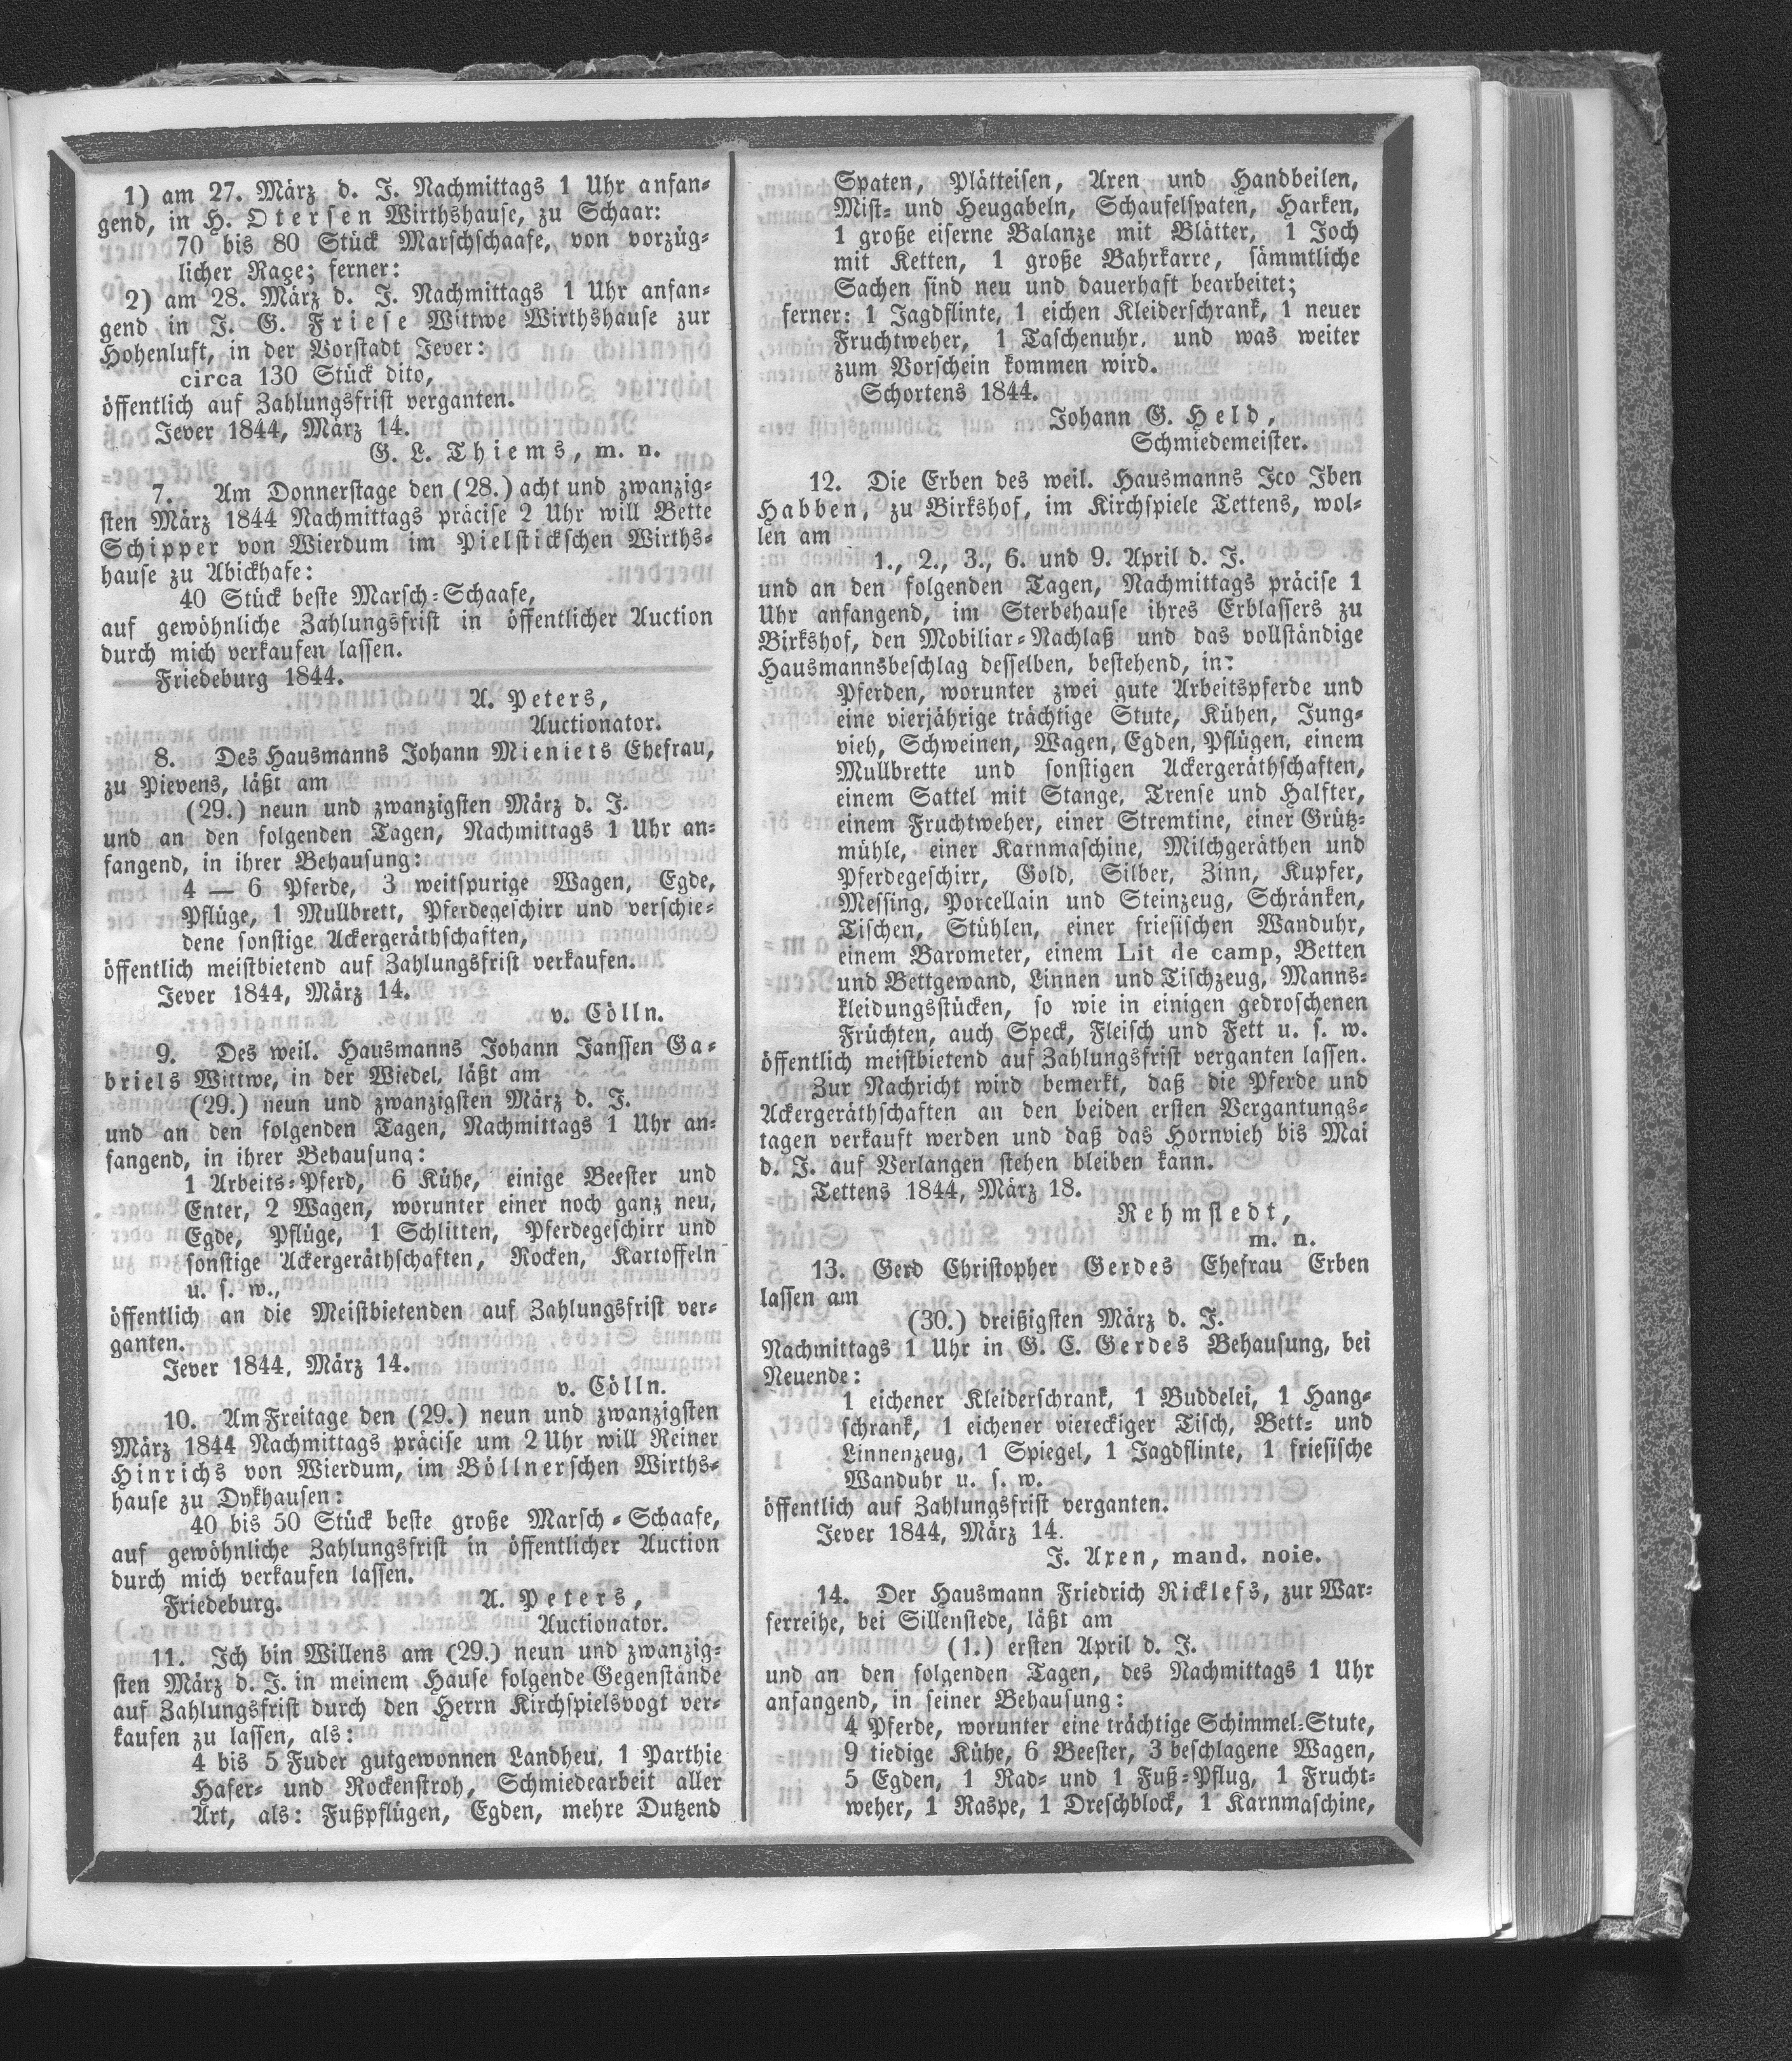 1) am 27. März d. J. Nachmittags 1 Uhr anfan-
gend, in H. Otersen Wirthshause, zu Schaar:
70 bis 80 Stück Marschschaafe, von vorzüg-
licher Raçe; ferner:
2) am 28. März d. J. Nachmittags 1 Uhr anfan-
gend in J. G. Friese Wittwe Wirthshause zur
Hohenluft, in der Vorstadt Jever:
circa 130 Stück dito,
öffentlich auf Zahlungsfrist verganten.
Jever 1844, März 14.
G. L. Thiems, m. n.
7. Am Donnerstage den (28.) acht und zwanzig-
sten März 1844 Nachmittags präcise 2 Uhr will Bette
Schipper von Wierdum im Pielstickschen Wirths-
hause zu Abickhafe:
40 Stück beste Marsch-Schaafe,
auf gewöhnliche Zahlungsfrist in öffentlicher Auction
durch mich verkaufen lassen.
Friedeburg 1844.
A. Peters,
Auctionator.
8. Des Hausmanns Johann Mieniets Ehefrau,
zu Pievens, läßt am
(29.) neun und zwanzigsten März d. J.
und an den folgenden Tagen, Nachmittags 1 Uhr an-
fangend, in ihrer Behausung:
4 — 6 Pferde, 3 weitspurige Wagen, Egde,
Pflüge, 1 Mullbrett, Pferdegeschirr und verschie-
dene sonstige Ackergeräthschaften,
öffentlich meistbietend auf Zahlungsfrist verkaufen.
Jever 1844, März 14.
v. Cölln.
9. Des weil. Hausmanns Johann Janssen Ga-
briels Wittwe, in der Wiedel, läßt am
(29.) neun und zwanzigsten März d. J.
und an den folgenden Tagen, Nachmittags 1 Uhr an-
fangend, in ihrer Behausung:
1 Arbeits-Pferd, 6 Kühe, einige Beester und
Enter, 2 Wagen, worunter einer noch ganz neu,
Egde, Pflüge, 1 Schlitten, Pferdegeschirr und
sonstige Ackergeräthschaften, Rocken, Kartoffeln
u. s. w.,
öffentlich an die Meistbietenden auf Zahlungsfrist ver-
ganten.
Jever 1844, März 14.
v. Cölln.
10. Am Freitage den (29.) neun und zwanzigsten
März 1844 Nachmittags präcise um 2 Uhr will Reiner
Hinrichs von Wierdum, im Böllnerschen Wirths-
hause zu Dykhausen:
40 bis 50 Stück beste große Marsch-Schaafe,
auf gewöhnliche Zahlungsfrist in öffentlicher Auction
durch mich verkaufen lassen.
Friedeburg. A. Peters,
Auctionator.
11. Ich bin Willens am (29.) neun und zwanzig-
sten März d. J. in meinem Hause folgende Gegenstände
auf Zahlungsfrist durch den Herrn Kirchspielsvogt ver-
kaufen zu lassen, als:
4 bis 5 Fuder gutgewonnen Landheu, 1 Parthie
Hafer- und Rockenstroh, Schmiedearbeit aller
Art, als: Fußpflügen, Egden, mehre Dutzend
Spaten, Plätteisen, Axen und Handbeilen,
Mist- und Heugabeln, Schaufelspaten, Harken,
1 große eiserne Balanze mit Blätter, 1 Joch
mit Ketten, 1 große Bahrkarre, sämmtliche
Sachen sind neu und dauerhaft bearbeitet;
ferner: 1 Jagdflinte, 1 eichen Kleiderschrank, 1 neuer
Fruchtweher, 1 Taschenuhr, und was weiter
zum Vorschein kommen wird.
Schortens 1844.
Johann G. Held,
Schmiedemeister.
12. Die Erben des weil. Hausmanns Ico Iben
Habben, zu Birkshof, im Kirchspiele Tettens, wol-
len am
1., 2., 3., 6. und 9. April d. J.
und an den folgenden Tagen, Nachmittags präcise 1
Uhr anfangend, im Sterbehause ihres Erblassers zu
Birkshof, den Mobiliar-Nachlaß und das vollständige
Hausmannsbeschlag desselben, bestehend, in:
Pferden, worunter zwei gute Arbeitspferde und
eine vierjährige trächtige Stute, Kühen, Jung-
vieh, Schweinen, Wagen, Egden, Pflügen, einem
Mullbrette und sonstigen Ackergeräthschaften,
einem Sattel mit Stange, Trense und Halfter,
einem Fruchtweher, einer Stremtine, einer Grütz-
mühle, einer Karnmaschine, Milchgeräthen und
Pferdegeschirr, Gold, Silber, Zinn, Kupfer,
Messing, Porcellain und Steinzeug, Schränken,
Tischen, Stühlen, einer friesischen Wanduhr,
einem Barometer, einem Lit de camp, Betten
und Bettgewand, Linnen und Tischzeug, Manns-
kleidungsstücken, so wie in einigen gedroschenen
Früchten, auch Speck, Fleisch und Fett u. s. w.
öffentlich meistbietend auf Zahlungsfrist verganten lassen.
Zur Nachricht wird bemerkt, daß die Pferde und
Ackergeräthschaften an den beiden ersten Vergantungs-
tagen verkauft werden und daß das Hornvieh bis Mai
d. J. auf Verlangen stehen bleiben kann.
Tettens 1844, März 18.
Rehmstedt,
m. n.
13. Gerd Christopher Gerdes Ehefrau Erben
lassen am
(30.) dreißigsten März d. J.
Nachmittags 1 Uhr in G. C. Gerdes Behausung, bei
Neuende:
1 eichener Kleiderschrank, 1 Buddelei, 1 Hang-
schrank, 1 eichener viereckiger Tisch, Bett- und
Linnenzeug, 1 Spiegel, 1 Jagdflinte, 1 friesische
Wanduhr u. s. w.
öffentlich auf Zahlungsfrist verganten.
Jever 1844, März 14.
J. Axen, mand. noie.
14. Der Hausmann Friedrich Ricklefs, zur War-
ferreihe, bei Sillenstede, läßt am
(1.) ersten April d. J.
und an den folgenden Tagen, des Nachmittags 1 Uhr
anfangend, in seiner Behausung:
4 Pferde, worunter eine trächtige Schimmel-Stute,
9 tiedige Kühe, 6 Beester, 3 beschlagene Wagen,
5 Egden, 1 Rad- und 1 Fuß-Pflug, 1 Frucht-
weher, 1 Raspe, 1 Dreschblock, 1 Karnmaschine,